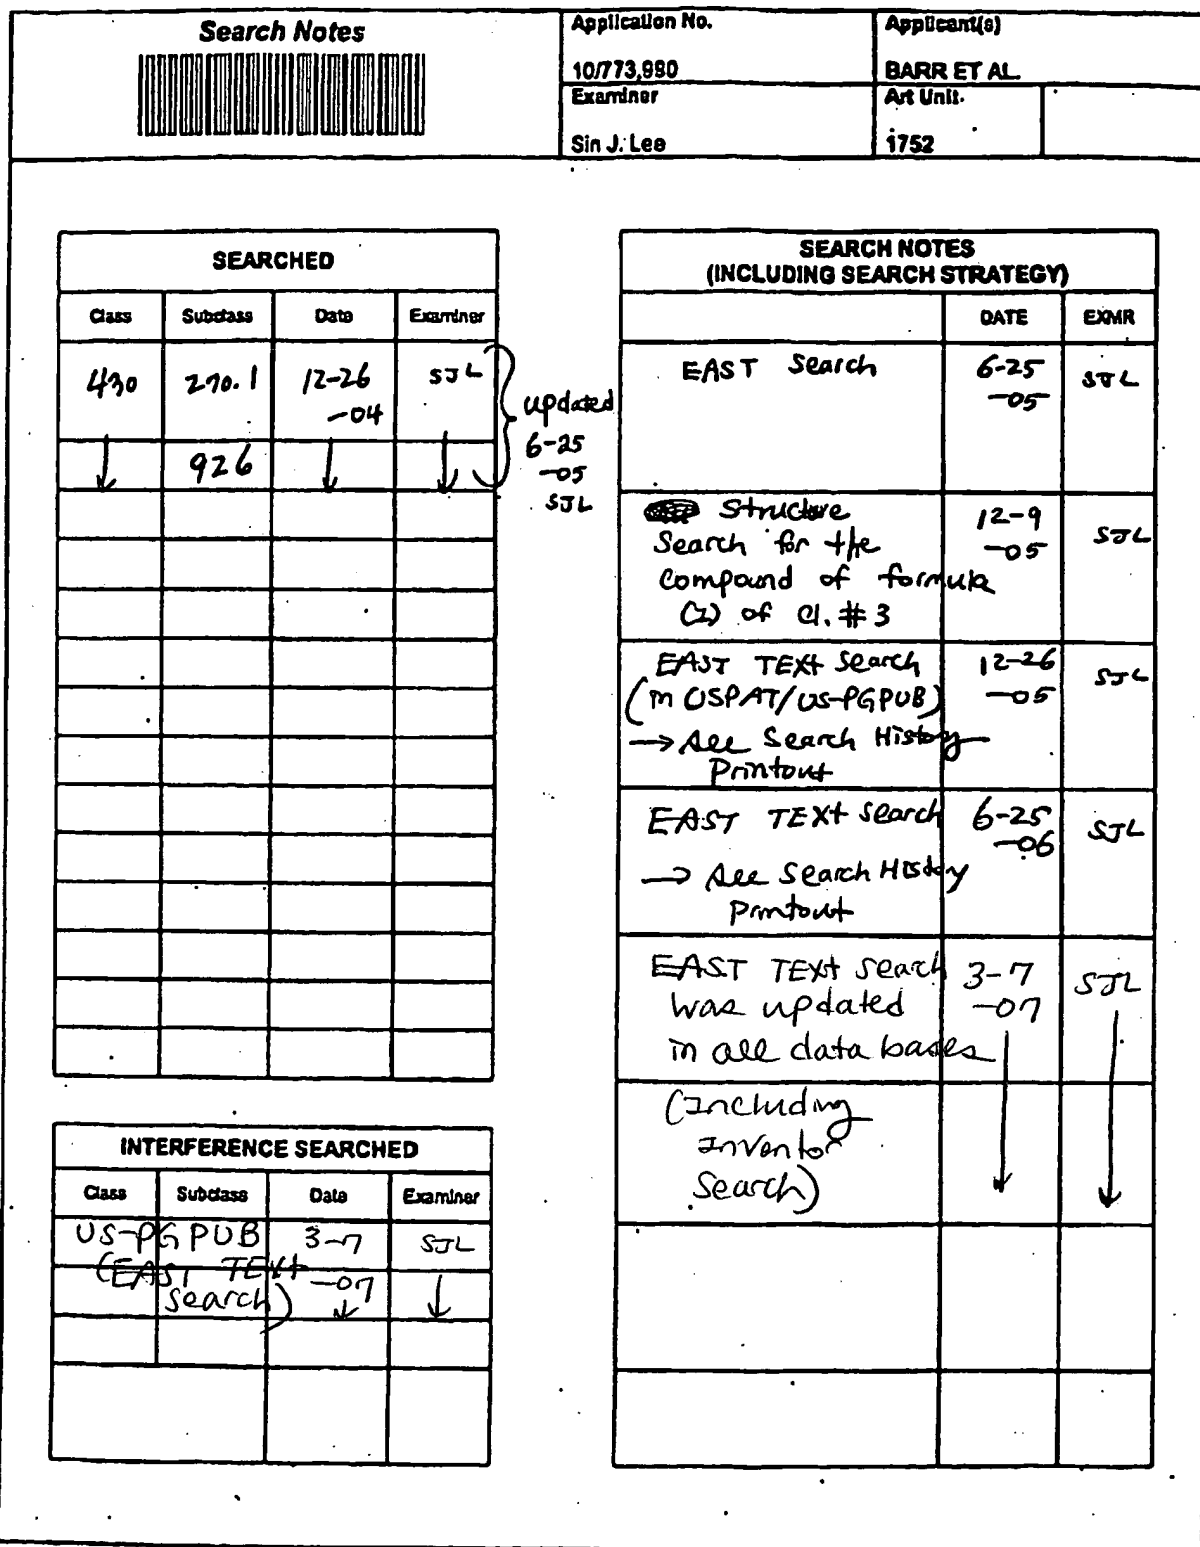 Search Notes
Application No.
10/773,990
Applicant(s)
BARR ET AL.
Examiner
Sin J. Lee
Art Unit
1752
SEARCHED
Class Subclass Date Examiner
430 270.1 12-26 SJL
-04
926
updated
6-25
-05
SJL
INTERFERENCE SEARCHED
Class Subclass Date Examiner
US-PGPUB 3-7 SJL
(EAST TEXt -07
Search)
SEARCH NOTES
(INCLUDING SEARCH STRATEGY)
DATE EXMR
EAST Search 6-25 SJL
-05
Structure 12-9 SJL
Search for the -05
Compound of formula
(I) of Cl. #3
EAST TEXt Search 12-26 SJL
(in USPAT/US-PGPUB) -05
→ See Search History
Printout
EAST TEXt Search 6-25 SJL
-06
→ See Search History
Printout
EAST TEXt Search 3-7 SJL
was updated -07
in all data bases
(Including
Inventor
Search)